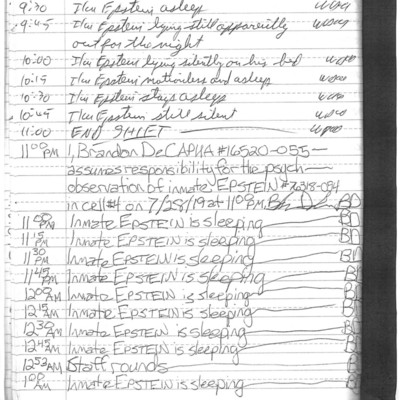 9:30 I/m Epstein asleep
9:45 I/m Epstein lying still apparently
out for the night
10:00 I/m Epstein lying silently on his bed
10:15 I/m Epstein motionless and asleep
10:30 I/m Epstein stays asleep
10:45 I/m Epstein still silent
11:00 END SHIFT
11:00 PM I, Brandon DeCAPUA #16520-055—
assumes responsibility for the psych
observation of inmate EPSTEIN #76318-054
in cell #4 on 7/28/19 at 11:00PM. BD
11:00 PM Inmate EPSTEIN is sleeping BD
11:15 PM Inmate EPSTEIN is sleeping BD
11:30 PM Inmate EPSTEIN is sleeping BD
11:45 PM Inmate EPSTEIN is sleeping BD
12:00 AM Inmate EPSTEIN is sleeping BD
12:15 AM Inmate EPSTEIN is sleeping BD
12:30 AM Inmate EPSTEIN is sleeping BD
12:45 AM Inmate EPSTEIN is sleeping BD
12:52 AM Staff rounds BD
1:00 AM Inmate EPSTEIN is sleeping BD